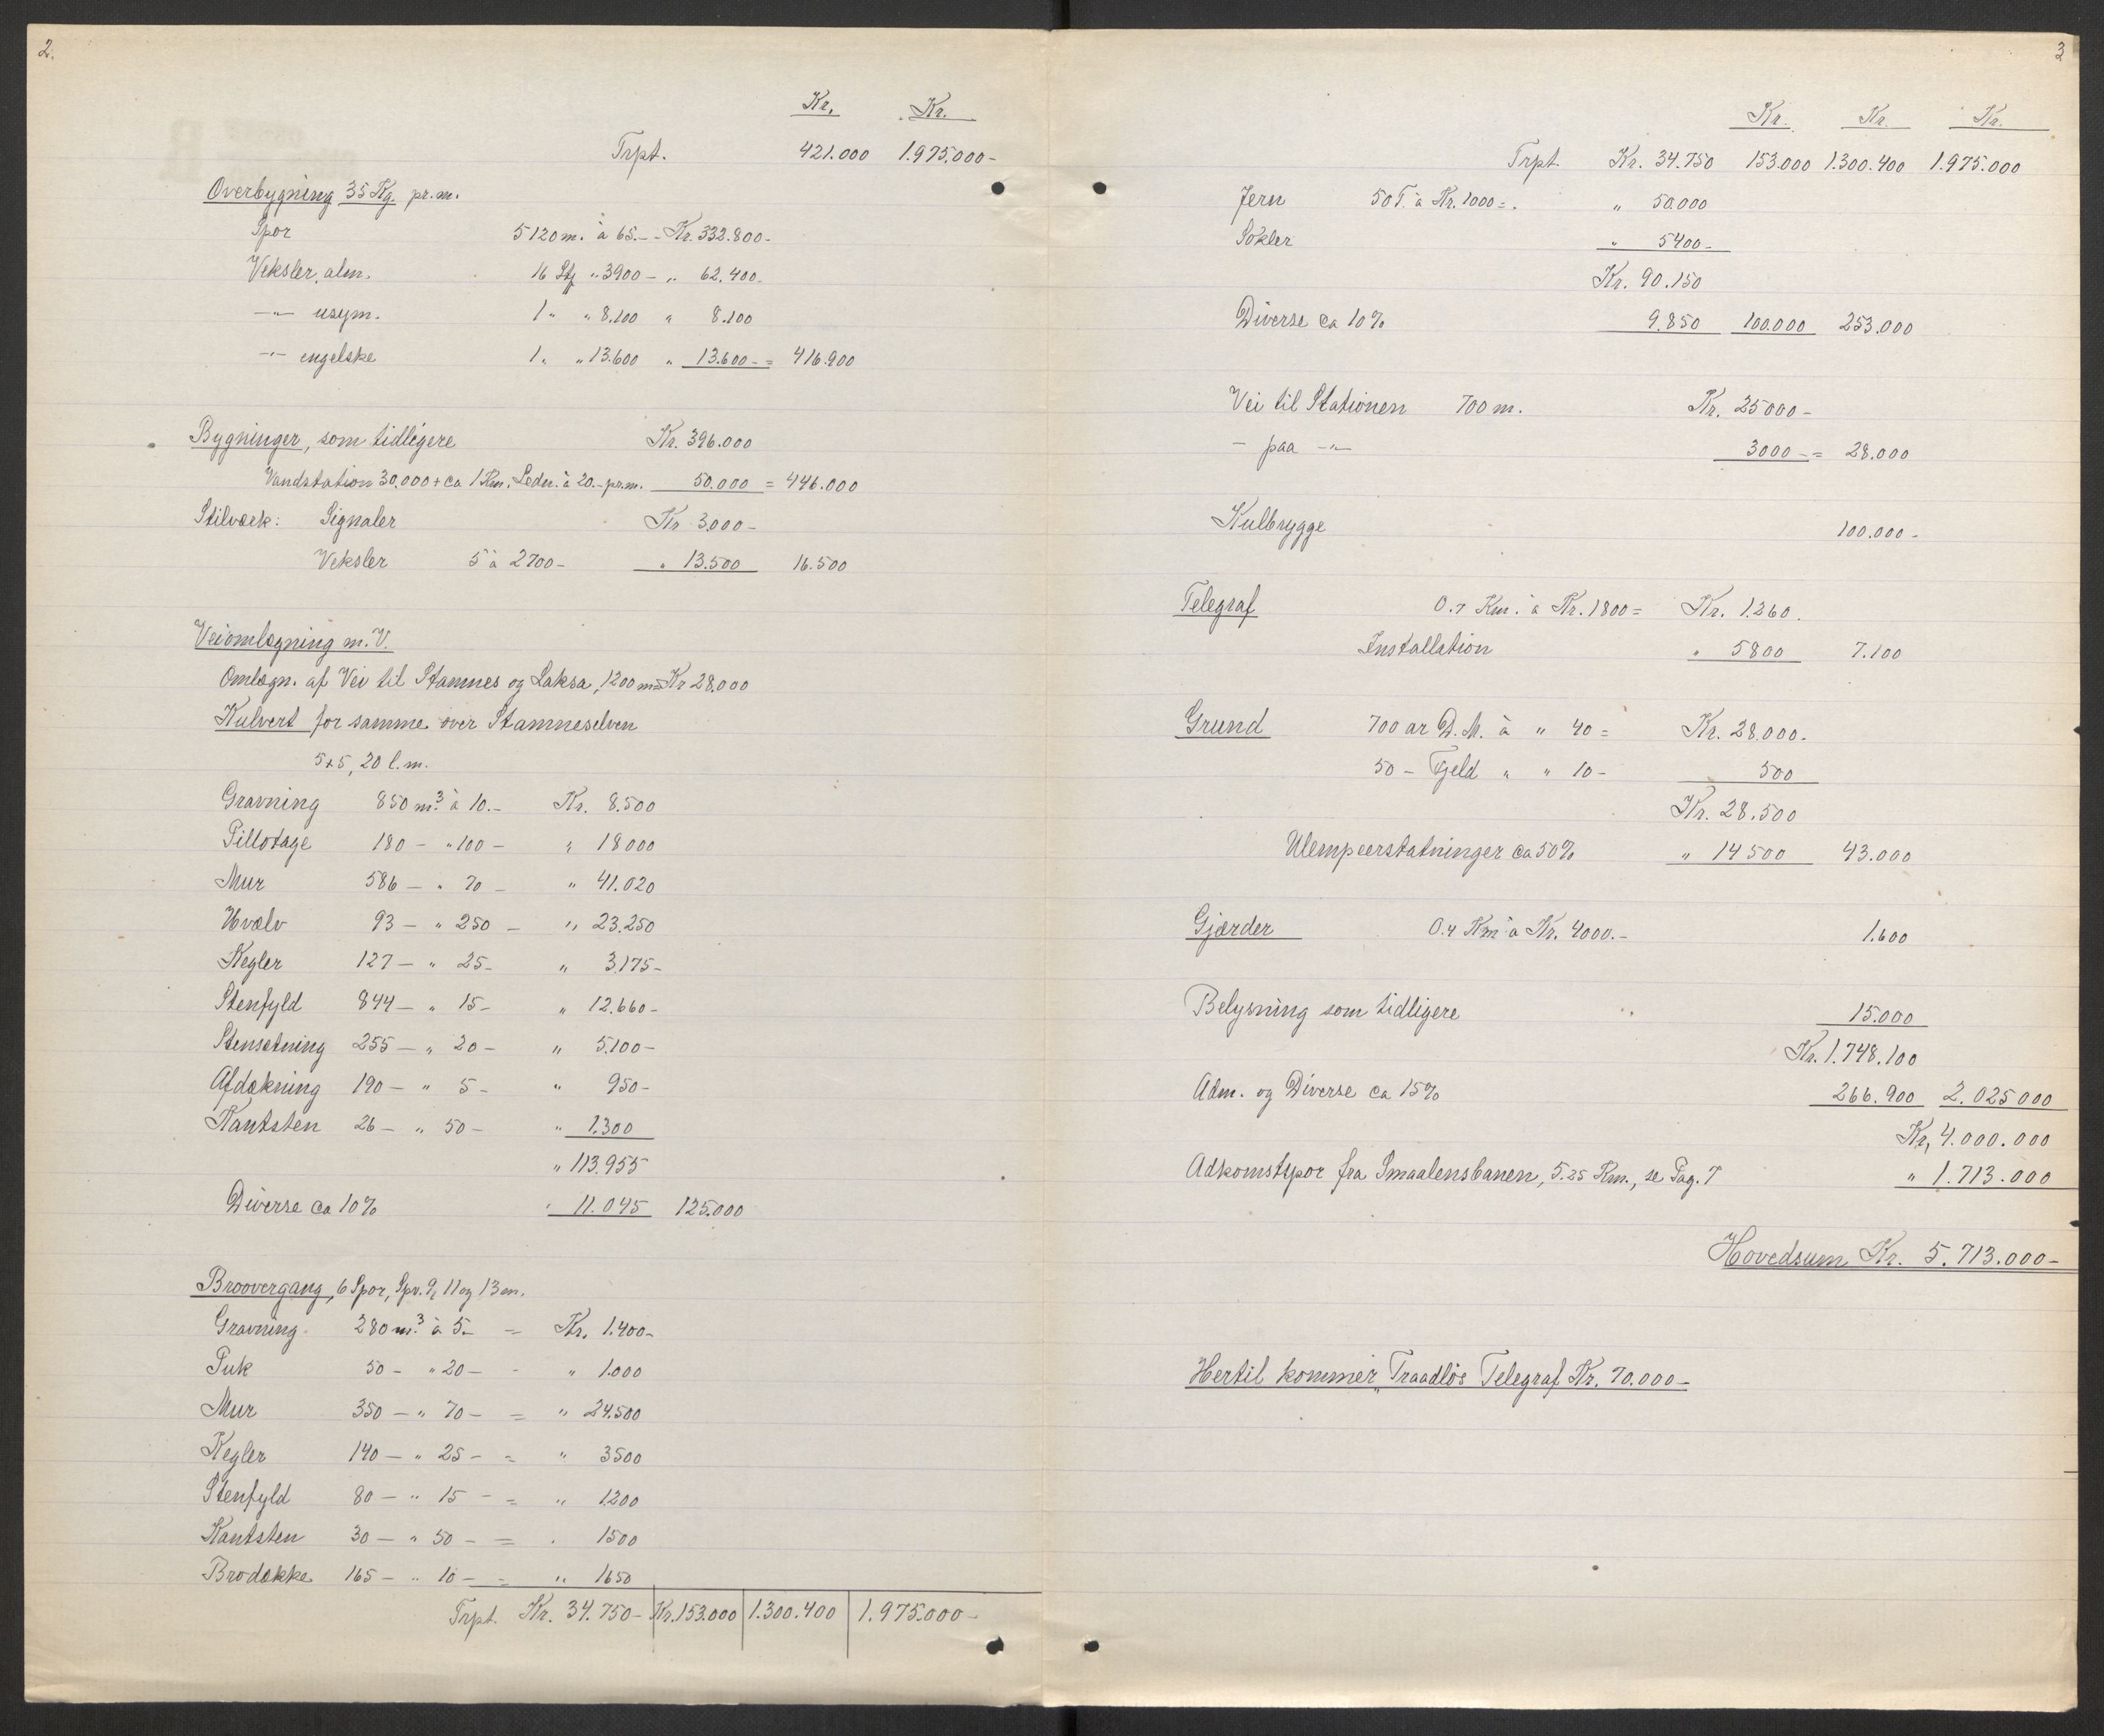 2.
Kr. Kr.
Trpt. 421.000 1.975.000-
Overbygning 35 Kg. pr. m.
Spor 5120 m. à 65.- - Kr. 332.800-
Veksler, alm. 16 Stk " 3900 - " 62.400-
-"- usym. 1 " " 8.100 " 8.100
-"- engelske 1 " " 13.600 " 13.600- = 416.900
Bygninger, som tidligere Kr. 396.000
Vandstation 30.000 + ca 1 Km. Ledn. à 20.- pr. m. 50.000 = 446.000
Stilværk: Signaler Kr 3.000-
Veksler 5 à 2700- " 13.500 16.500
Veiomlægning m. V.
Omlægn. af Vei til Stamnes og Laksa, 1200 m = Kr 28.000
Kulvert for samme over Stamneselven
5x5, 20 l. m.
Gravning 850 m.³ à 10.- Kr. 8.500
Pillotage 180 - " 100 - " 18000
Mur 586 - " 70 - " 41.020
Hvælv 93 - " 250 - " 23.250
Kegler 127 - " 25- " 3.175-
Stenfyld 844 - " 15- " 12.660-
Stensætning 255 - " 20- " 5.100-
Afdækning 190 - " 5- " 950-
Kantsten 26 - " 50- " 1.300
" 113.955
Diverse ca 10% " 11.045 125.000
Broovergang, 6 Spor, Spv. 9, 11 og 13 m.
Gravning 280 m.³ à 5.- = Kr. 1.400-
Puk 50 - " 20 - - " 1.000
Mur 350 - " 70 - = " 24.500
Kegler 140 - " 25 - = " 3500
Stenfyld 80 - " 15 - = " 1.200
Kantsten 30 - " 50 - = " 1500
Brodække 165 - " 10 - = " 1650
Trpt. Kr. 34.750- Kr. 153.000 1.300.400 1.975.000-
3
Kr. Kr. Kr.
Trpt. Kr. 34.750 153.000 1.300.400 1.975.000
Jern 50 T. à Kr. 1000 = " 50.000
Sokler " 5400-
Kr. 90.150
Diverse ca 10% 9.850 100.000 253.000
Vei til Stationen 700 m. Kr. 25000-
- paa -"- 3000- = 28.000
Kulbrygge 100.000-
Telegraf 0.7 Km. à Kr. 1800 = Kr. 1.260.
Installation " 5800 7.100
Grund 700 ar D. M. à " 40 = Kr. 28.000-
50 - Fjeld " " 10 - 500
Kr. 28.500
Ulempeerstatninger ca 50% " 14500 43.000
Gjærder 0.4 Km à Kr. 4000.- 1.600
Belysning som tidligere 15.000
Kr. 1.748.100
Adm. og Diverse ca 15% 266.900 2.025000
Kr. 4.000.000
Adkomstspor fra Smaalensbanen, 5.25 Km., se Pag. 7 " 1.713.000
Hovedsum Kr. 5.713.000-
Hertil kommer "Traadløs Telegraf Kr. 70.000-